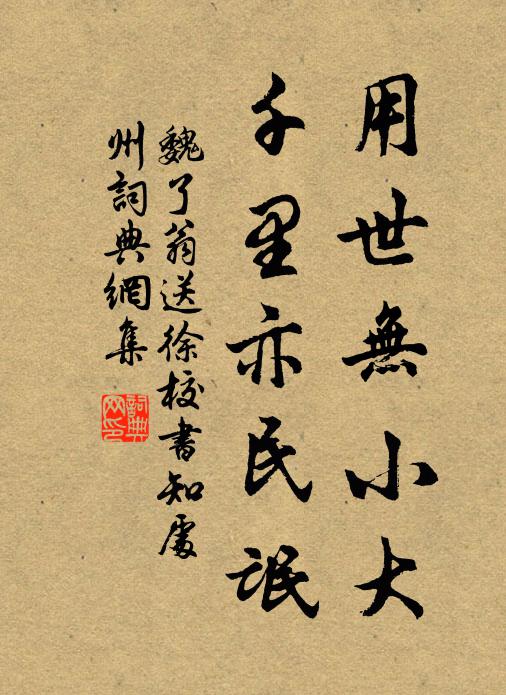 用世無小大
千里亦民氓
魏了翁送徐校書知處
州詞典網集
詞典网印